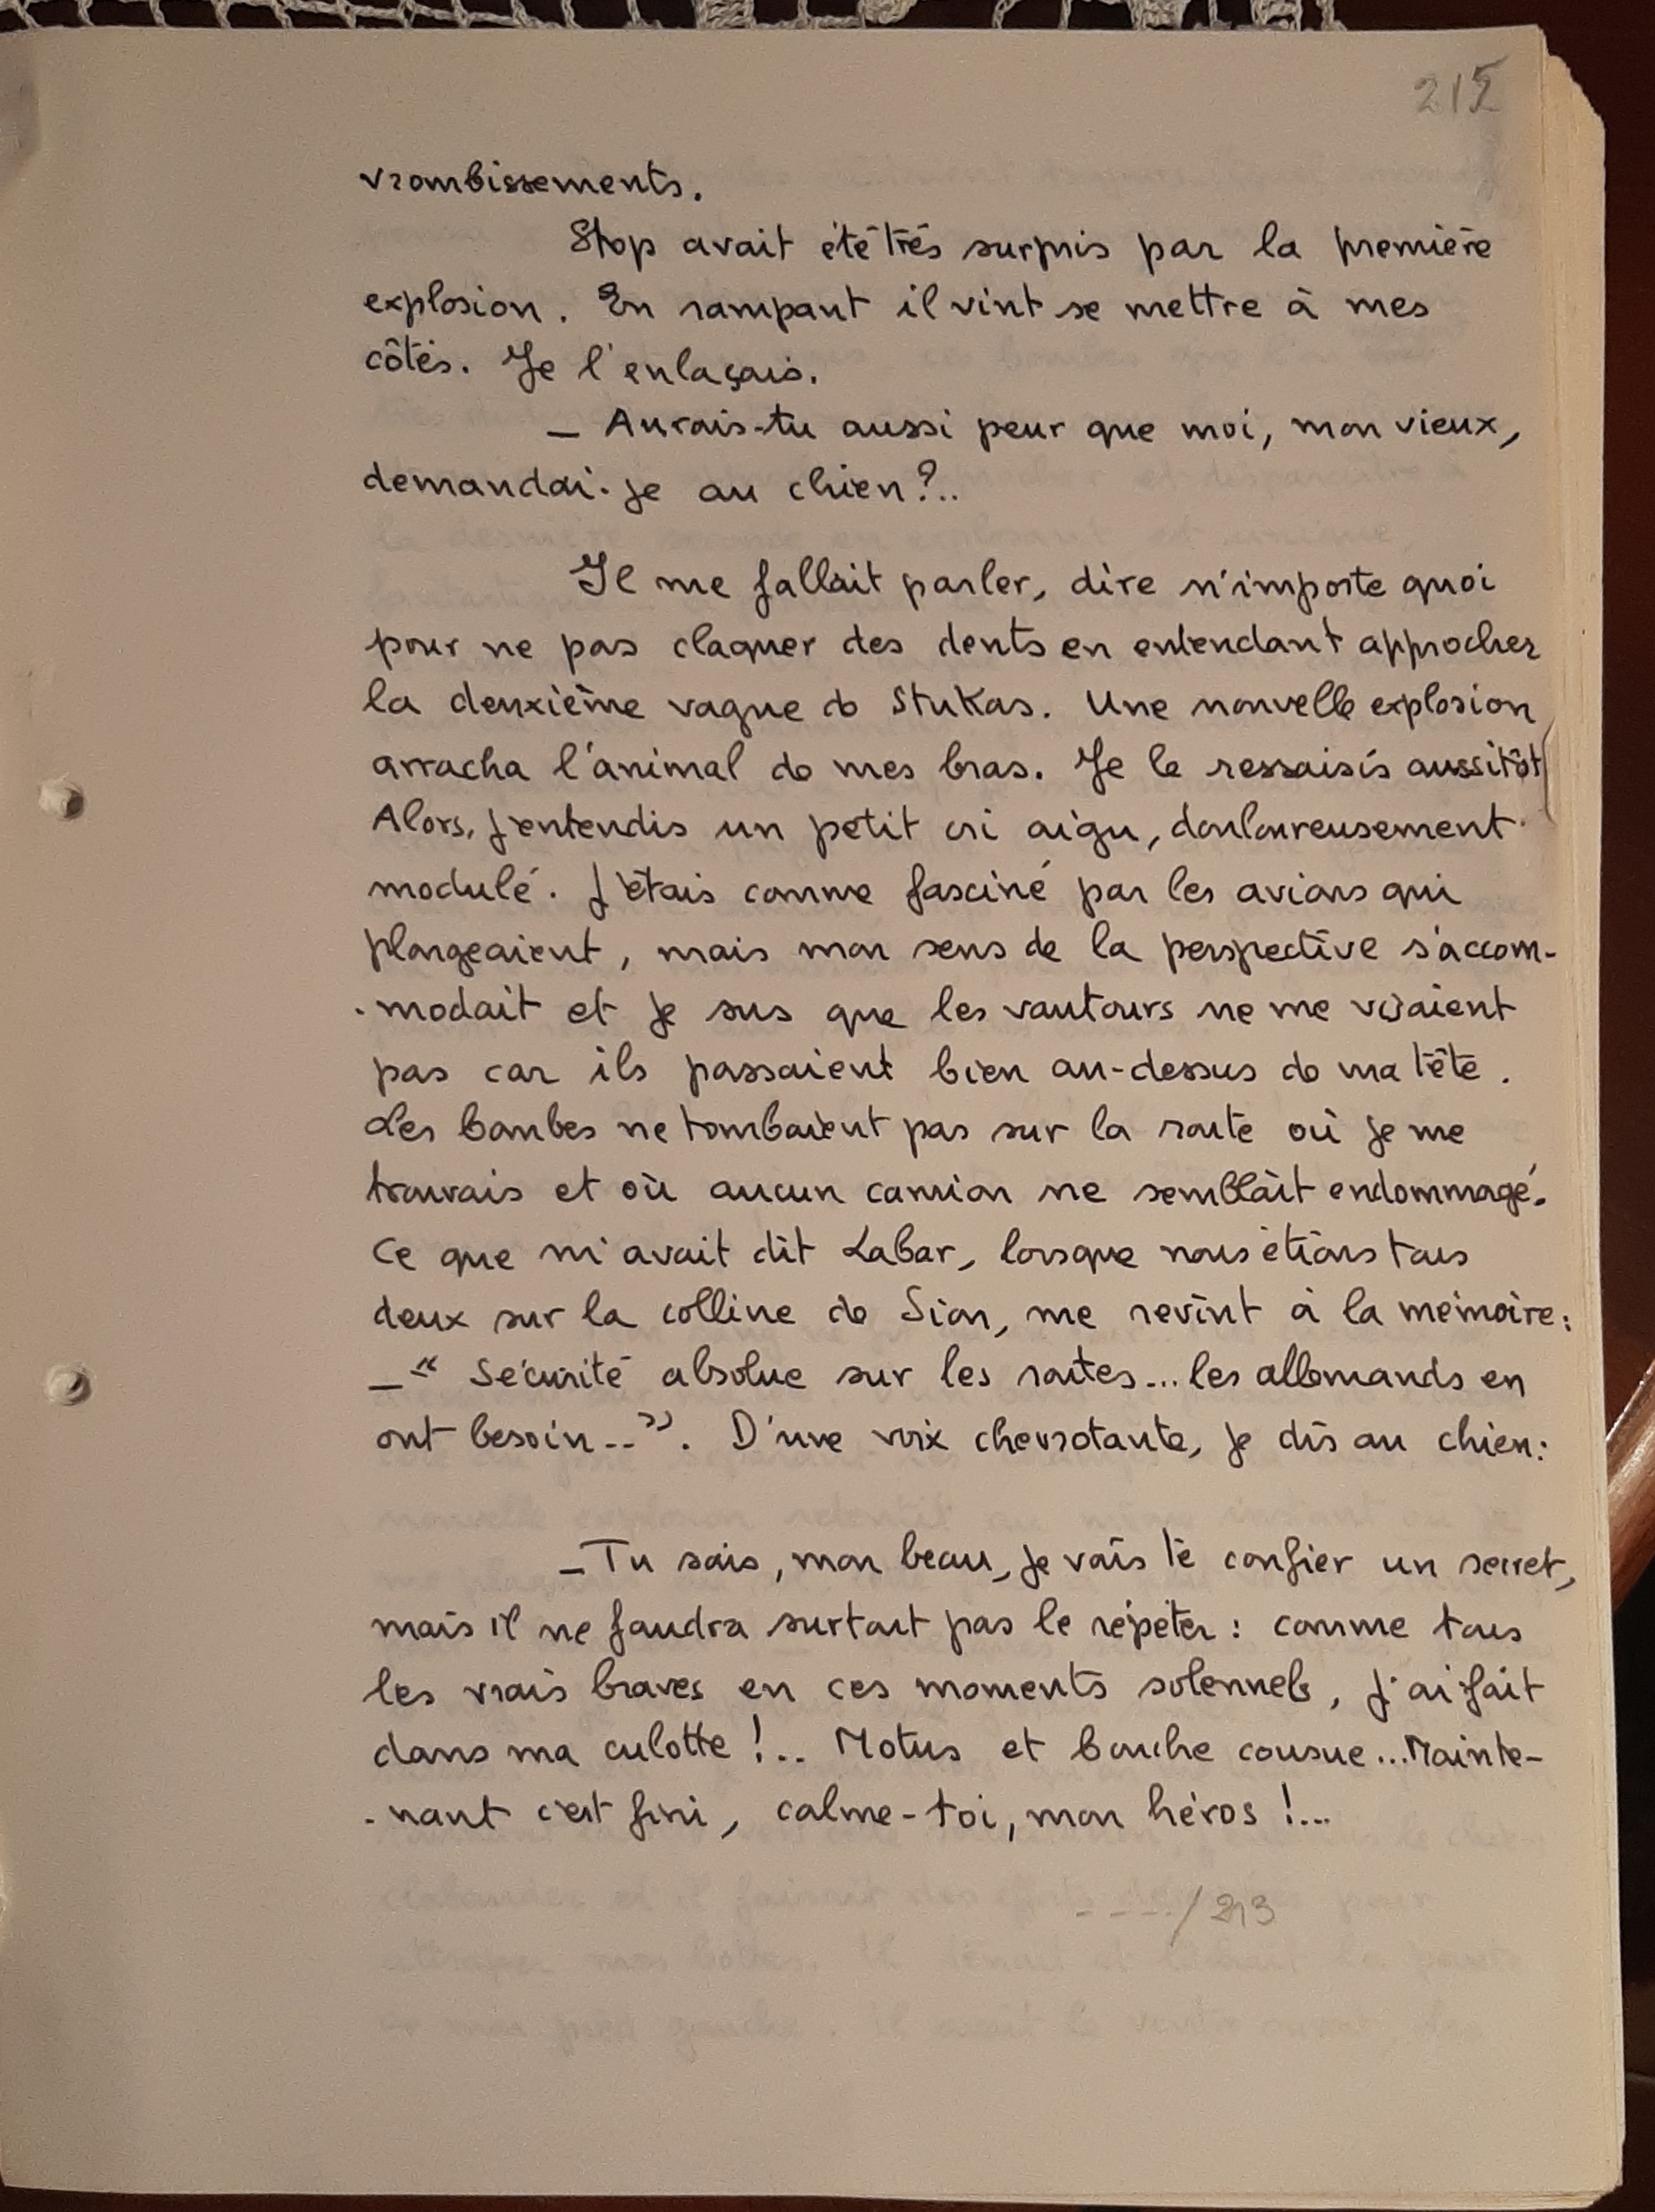 212
vrombissements.
Stop avait été très surpris par la première
explosion. En rampant il vint se mettre à mes
côtés. Je l'enlaçais.
— Aurais-tu aussi peur que moi, mon vieux,
demandai-je au chien ?..
Il me fallait parler, dire n'importe quoi
pour ne pas claquer des dents en entendant approcher
la deuxième vague de Stukas. Une nouvelle explosion
arracha l'animal de mes bras. Je le ressaisis aussitôt
Alors, j'entendis un petit cri aigu, douloureusement
modulé. J'étais comme fasciné par les avions qui
plongeaient, mais mon sens de la perspective s'accom-
-modait et je sus que les vautours ne me visaient
pas car ils passaient bien au-dessus de ma tête.
Les bombes ne tombaient pas sur la route où je me
trouvais et où aucun camion ne semblait endommagé.
Ce que m'avait dit Labar, lorsque nous étions tous
deux sur la colline de Sion, me revint à la mémoire :
— " Sécurité absolue sur les routes... les allemands en
ont besoin.. ". D'une voix chevrotante, je dis au chien :
— Tu sais, mon beau, je vais te confier un secret,
mais il ne faudra surtout pas le répéter : comme tous
les vrais braves en ces moments solennels, j'ai fait
dans ma culotte !.. Motus et bouche cousue... Mainte-
-nant c'est fini, calme-toi, mon héros !...
- - - . / 213